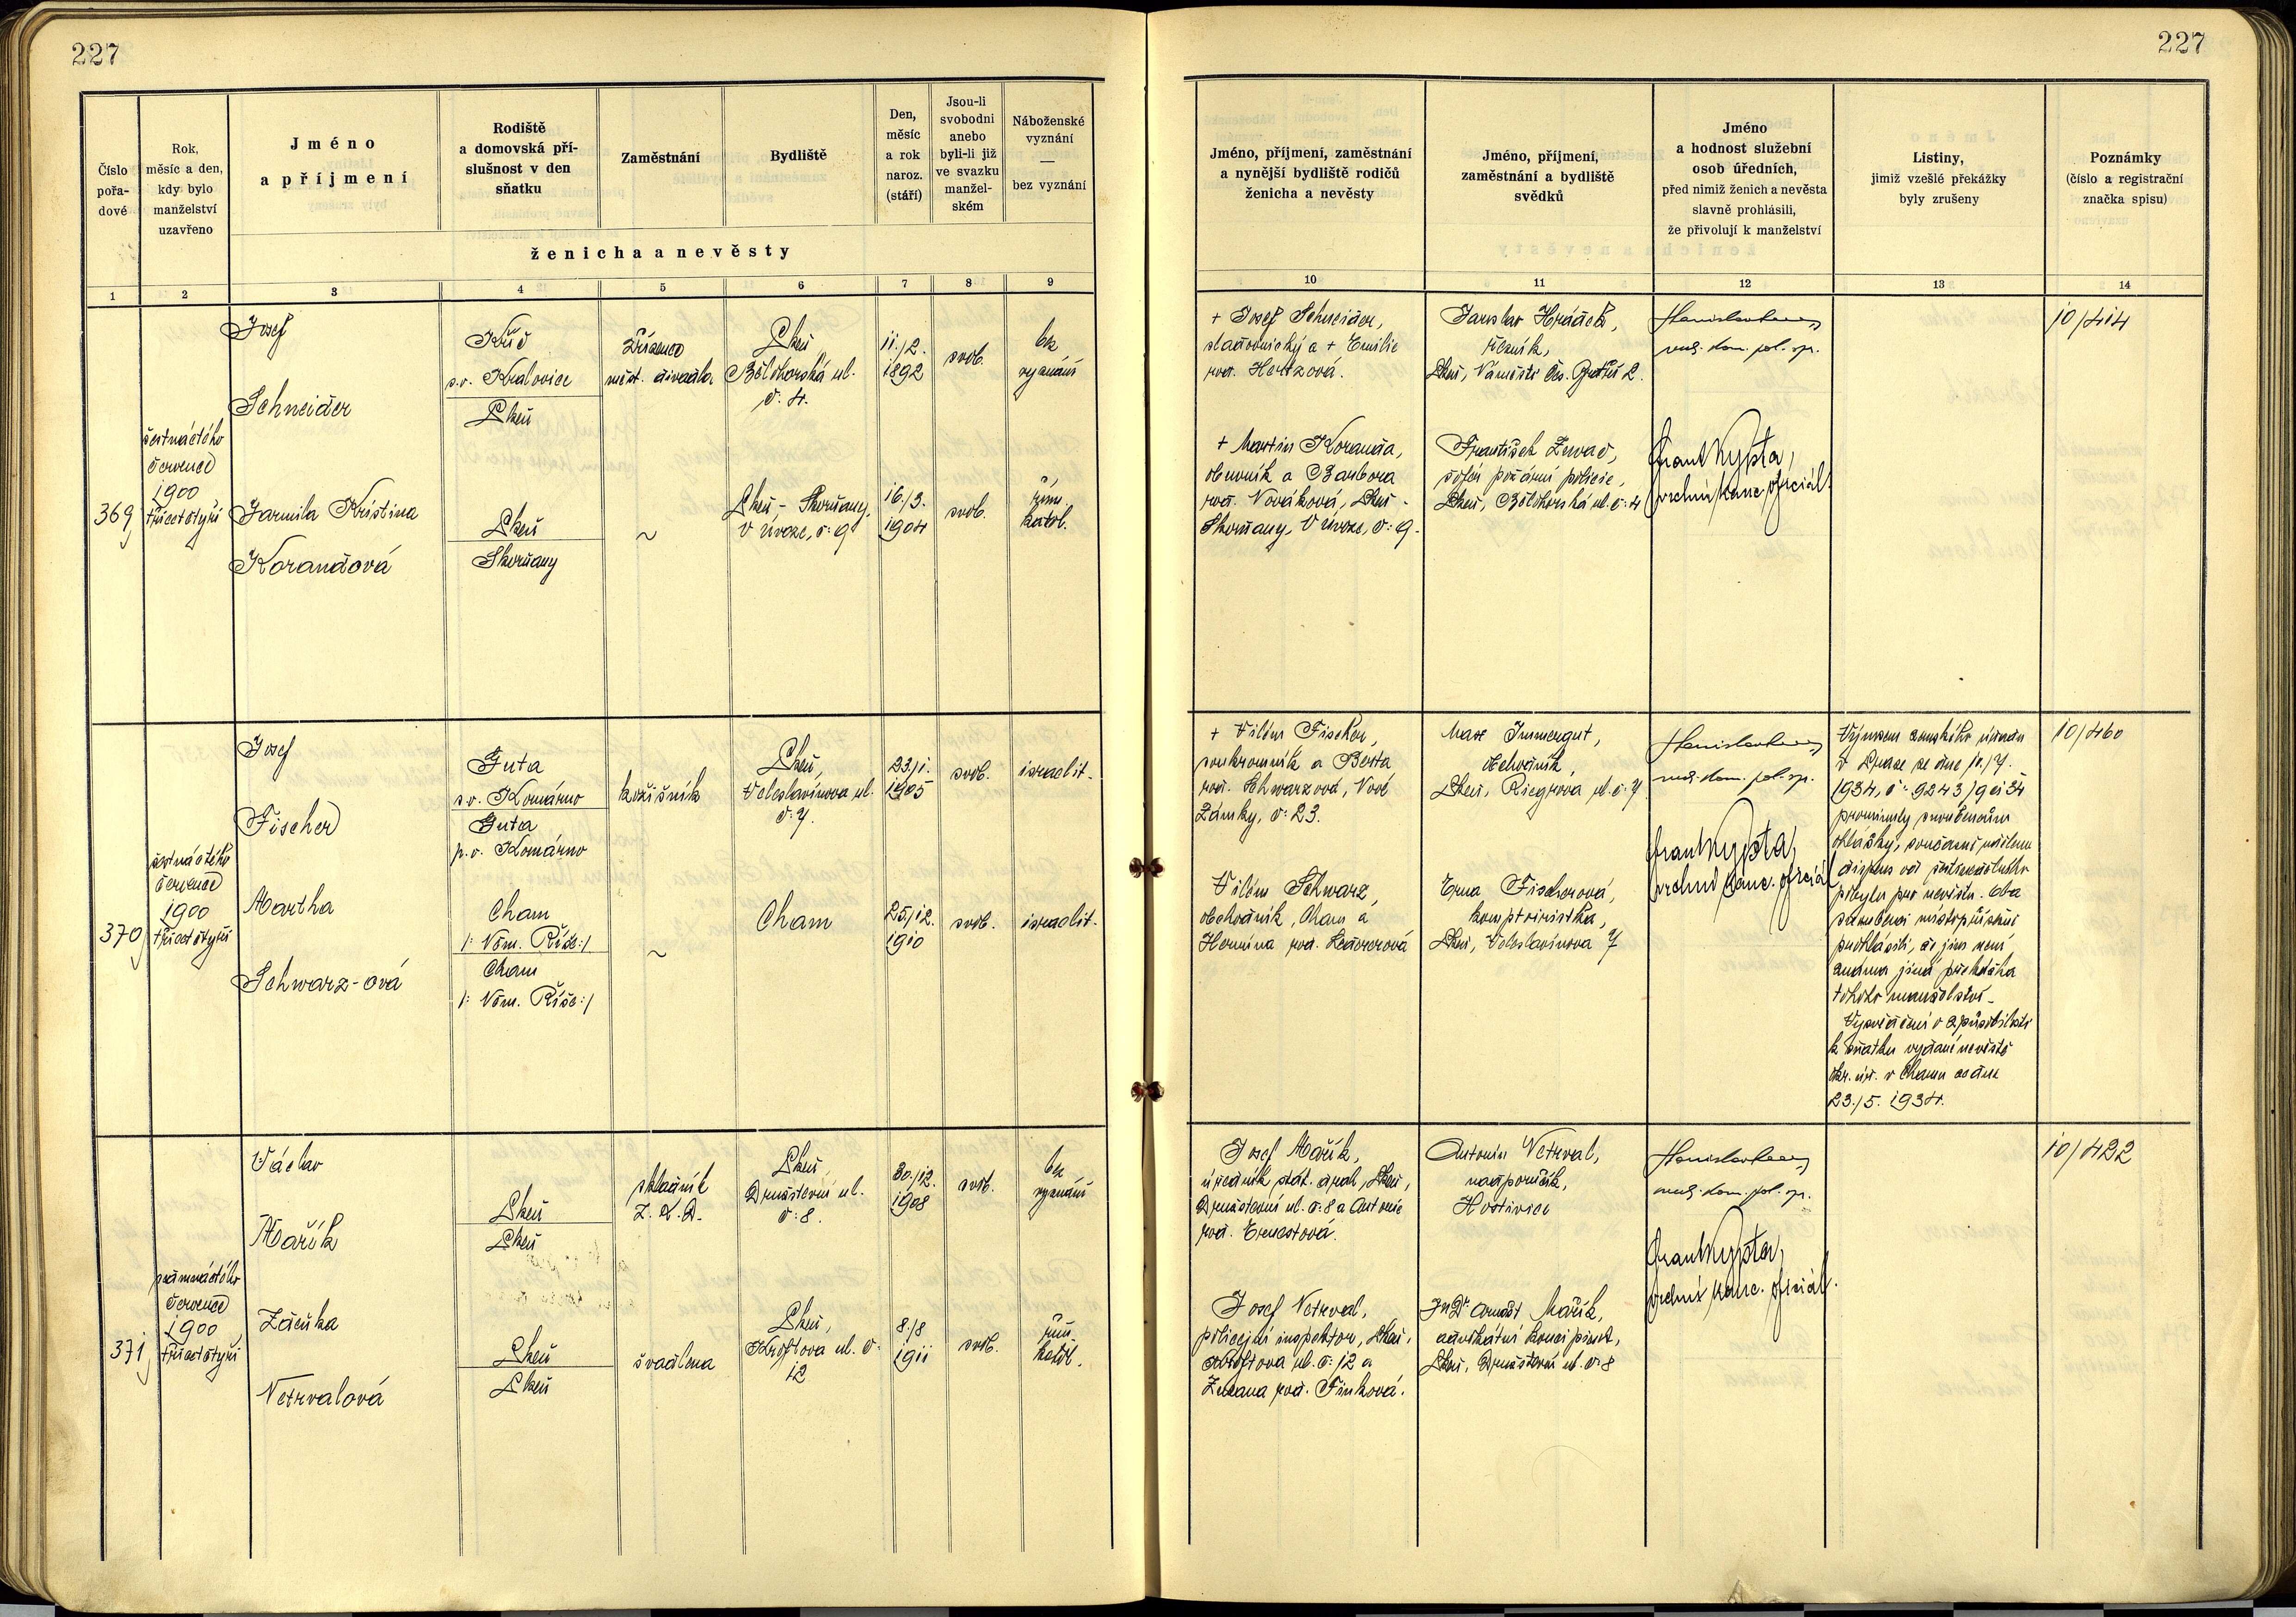 227
227
Číslo
pořa-
dové
Rok,
měsíc a den,
kdy bylo
manželství
uzavřeno
Jméno
a příjmení
Rodiště
a domovská pří-
slušnost v den
sňatku
Zaměstnání
Bydliště
Den,
měsíc
a rok
naroz.
(stáří)
Jsou-li
svobodni
anebo
byli-li již
ve svazku
manžel-
ském
Náboženské
vyznání
—
bez vyznání
ženicha a nevěsty
Jméno, příjmení, zaměstnání
a nynější bydliště rodičů
ženicha a nevěsty
Jméno, příjmení,
zaměstnání a bydliště
svědků
Jméno
a hodnost služební
osob úředních,
před nimiž ženich a nevěsta
slavně prohlásili,
že přivolují k manželství
Listiny,
jimiž vzešlé překážky
byly zrušeny
Poznámky
(číslo a registrační
značka spisu)
1 2 3 4 5 6 7 8 9
10 11 12 13 14
369
šestnáctého
července
1900
třicetčtyři
Josef
Schneider
s.o. Kralovice
Plzeň
zřízenec
měst. divadla
Plzeň
Bělohorská ul.
č. 4.
11./2.
1892
svob.
bez
vyznání
Jarmila Kristina
Korandová
Plzeň
Skvrňany
~
Plzeň - Skvrňany,
V úvoze, č: 9
16./3.
1904
svob.
řím.
katol.
+ Josef Schneider,
sladovnický a + Emilie
roz. Hertzová.
+ Martin Koranda,
obuvník a Barbora
roz. Nováková, Plzeň -
Skvrňany, V úvoze, č: 9.
Jaroslav Hrádek,
řezník,
Plzeň, Náměstí Čs. 2.
František
šofér požární policie,
Plzeň, Bělohorská ul. č: 4
rada. kom. pol. sp.
Frant. Kypta,
vrchní kanc. oficiál.
10/414
370
šestnáctého
července
1900
třicetčtyři
Josef
Fischer
Guta
s.o. Komárno
Guta
p.o. Komárno
kožišník
Plzeň,
Veleslavínova ul.
č: 7.
23./1.
1905
svob.
israelit.
Martha
Schwarz-ová
Cham
/: Něm. Říše:/
Cham
/: Něm. Říše:/
~
Cham
25./12.
1910
svob.
israelit.
+ Vilém Fischer,
soukromník a Berta
roz. Schwarzová, Nové
Zámky, č: 23.
Vilém Schwarz,
obchodník, Cham a
Hermina roz. Ledererová
Max Immergut,
obchodník,
Plzeň, Riegrova ul. č: 7
Erna Fischerová,
komptoiristka,
Plzeň, Veleslavínova 7
rada. kom. pol. sp.
Frant. Kypta,
vrchní kanc. oficiál
Výnosem zemského úřadu
v Praze ze dne 10./7.
1934, č: 9243/9 ai 34
prominuty snoubencům
ohlášky, současně udělen
dispens od šestinedělního
pobytu pro nevěstu. Oba
snoubenci místopřísežně
prohlásili, že jim není
známa jiná překážka
tohoto manželství.
Vysvědčení o způsobilosti
k sňatku vydané nevěstě
okr. úř. v Chamu ze dne
23./5. 1934.
10/460
371
osmnáctého
července
1900
třicetčtyři
Václav
Mařík
Plzeň
Plzeň
skladník
Z. Z. D.
Plzeň,
Družstevní ul.
č: 8.
30./12.
1908
svob.
bez
vyznání
Zdeňka
Netrvalová
Plzeň
Plzeň
švadlena
Plzeň,
Kroftova ul. č:
12
8./8
1911
svob.
řím.
katol.
Josef Mařík,
úředník stát. drah, Plzeň,
Družstevní ul. č: 8 a Antonie
roz. Ernestová.
Josef Netrval,
policejní inspektor, Plzeň,
Kroftova ul. č: 12 a
Zuzana roz. Finková.
Antonín Netrval,
nadporučík,
Hostivice
JuDr. Arnošt Mařík,
advokátní koncipient,
Plzeň, Družstevní ul. č: 8
rada. kom. pol. sp.
Frant. Kypta,
vrchní kanc. oficiál.
10/422